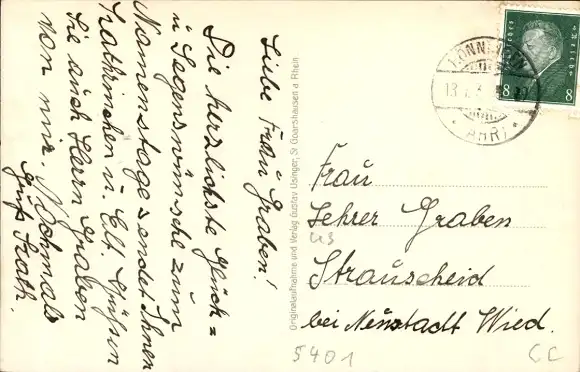 Liebe Frau Graben!
Die herzlichste Glück=
u Segenswünsche zum
Namenstage sendet Ihnen
Kathrinchen u. Elt. Grüßen
Sie auch Herrn Graben
von mir. Nochmals
Gruß
Originalaufnahme und Verlag Gustav Usinger, St Goarshausen a. Rhein
8 8
AHR
Frau
Lehrer Graben
Strauscheid
bei Neustadt Wied.
5401